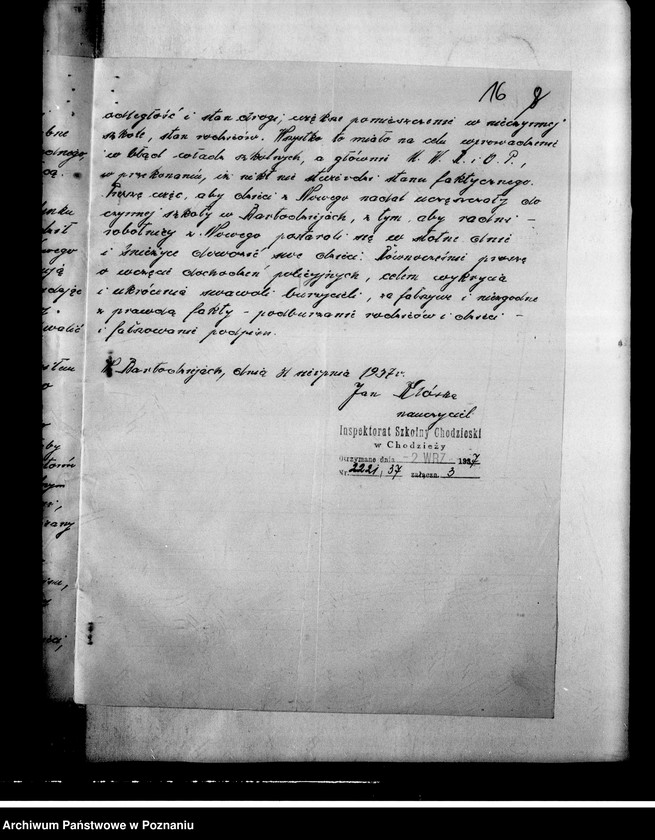 16 8
odległość i stan drogi, względne pomieszczenie w nieczynnej
szkole, stan rodziców. Wszystko to miało na celu wprowadzenie
w błąd władz szkolnych, a głównie M. W. R. i O. P.,
w przekonaniu, iż nikt nie stwierdzi stanu faktycznego.
Proszę więc, aby dzieci z Nowego nadal uczęszczały do
czynnej szkoły w Bartodziejach, z tym, aby rolni -
robotnicy z Nowego postarali się w słotne dnie
i śnieżyce dowozić swe dzieci. Równocześnie proszę
o wszczęcie dochodzeń policyjnych, celem wykrycia
i ukrócenia swawoli burzycieli, za fałszywe i niezgodne
z prawdą fakty - podburzanie rodziców i dzieci -
i fałszowanie podpisu.
W Bartodziejach, dnia 31 sierpnia 1937 r.
Jan
nauczyciel
Inspektorat Szkolny Chodzieski
w Chodzieży
Otrzymano dnia - 2 WRZ. 1937
Nr. 2221 / 37 załączn. 3
Archiwum Państwowe w Poznaniu